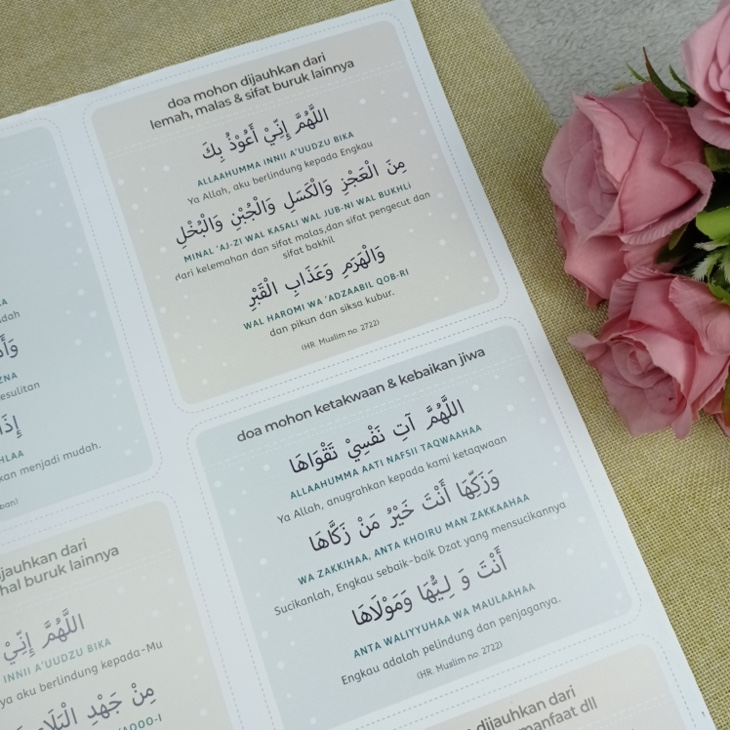 doa mohon dijauhkan dari
lemah, malas & sifat buruk lainnya
اللَّهُمَّ إِنِّيْ أَعُوْذُ بِكَ
ALLAAHUMMA INNII A'UUDZU BIKA
Ya Allah, aku berlindung kepada Engkau
مِنَ الْعَجْزِ وَالْكَسَلِ وَالْجُبْنِ وَالْبُخْلِ
MINAL 'AJ-ZI WAL KASALI WAL JUB-NI WAL BUKHLI
dari kelemahan dan sifat malas,dan sifat pengecut dan
sifat bakhil
وَالْهَرَمِ وَعَذَابِ الْقَبْرِ
WAL HAROMI WA 'ADZAABIL QOB-RI
dan pikun dan siksa kubur.
(HR. Muslim no. 2722)
doa mohon ketakwaan & kebaikan jiwa
اللَّهُمَّ آتِ نَفْسِيْ تَقْوَاهَا
ALLAAHUMMA AATI NAFSII TAQWAAHAA
Ya Allah, anugrahkan kepada kami ketaqwaan
وَزَكِّهَا أَنْتَ خَيْرُ مَنْ زَكَّاهَا
WA ZAKKIHAA, ANTA KHOIRU MAN ZAKKAAHAA
Sucikanlah, Engkau sebaik-baik Dzat yang mensucikannya
أَنْتَ وَ لِيُّهَا وَمَوْلَاهَا
ANTA WALIYYUHAA WA MAULAAHAA
Engkau adalah pelindung dan penjaganya.
(HR. Muslim no. 2722)
dijauhkan dari
manfaat dll
esulitan
إِذَا
HLAA
kan menjadi mudah.
jauhkan dari
hal buruk lainnya
اللَّهُمَّ إِنِّيْ
INNII A'UUDZU BIKA
ya aku berlindung kepada-Mu
مِنْ جَهْدِ الْبَلَا